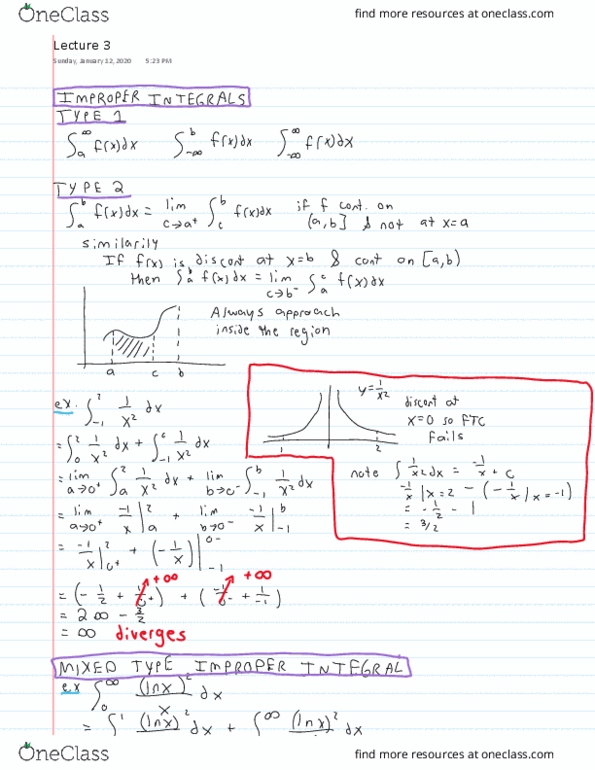 OneClass find more resources at oneclass.com
Lecture 3
Sunday, January 12, 2020 5:23 PM
IMPROPER INTEGRALS
TYPE 1
∫_a^∞ f(x)dx ∫_-∞^b f(x)dx ∫_-∞^∞ f(x)dx
TYPE 2
∫_a^b f(x)dx = lim c→a+ ∫_c^b f(x)dx if f cont. on
(a,b] & not at x=a
similarily
If f(x) is discont at x=b & cont on [a,b)
then ∫_a^b f(x)dx = lim c→b- ∫_a^c f(x)dx
Always approach
inside the region
a c b
ex. ∫_-1^2 1/x² dx
= ∫_0^2 1/x² dx + ∫_-1^0 1/x² dx
= lim a→0+ ∫_a^2 1/x² dx + lim b→0- ∫_-1^b 1/x² dx
= lim a→0+ -1/x |_a^2 + lim b→0- -1/x |_-1^b
= -1/x |_0+^2 + (-1/x) |_-1^0-
+∞ +∞
= (-1/2 + 1/0+) + (-1/0- + 1/-1)
= 2∞ - 3/2
= ∞ diverges
y=1/x²
-1 2
discont at
x=0 so FTC
Fails
note ∫ 1/x² dx = -1/x + C
-1/x |x=2 - (-1/x |x=-1)
= -1/2 - 1
= 3/2
MIXED TYPE IMPROPER INTEGRAL
ex ∫_0^∞ (lnx)²/x dx
= ∫^1 (lnx)² dx + ∫^∞ (lnx)² dx
OneClass find more resources at oneclass.com